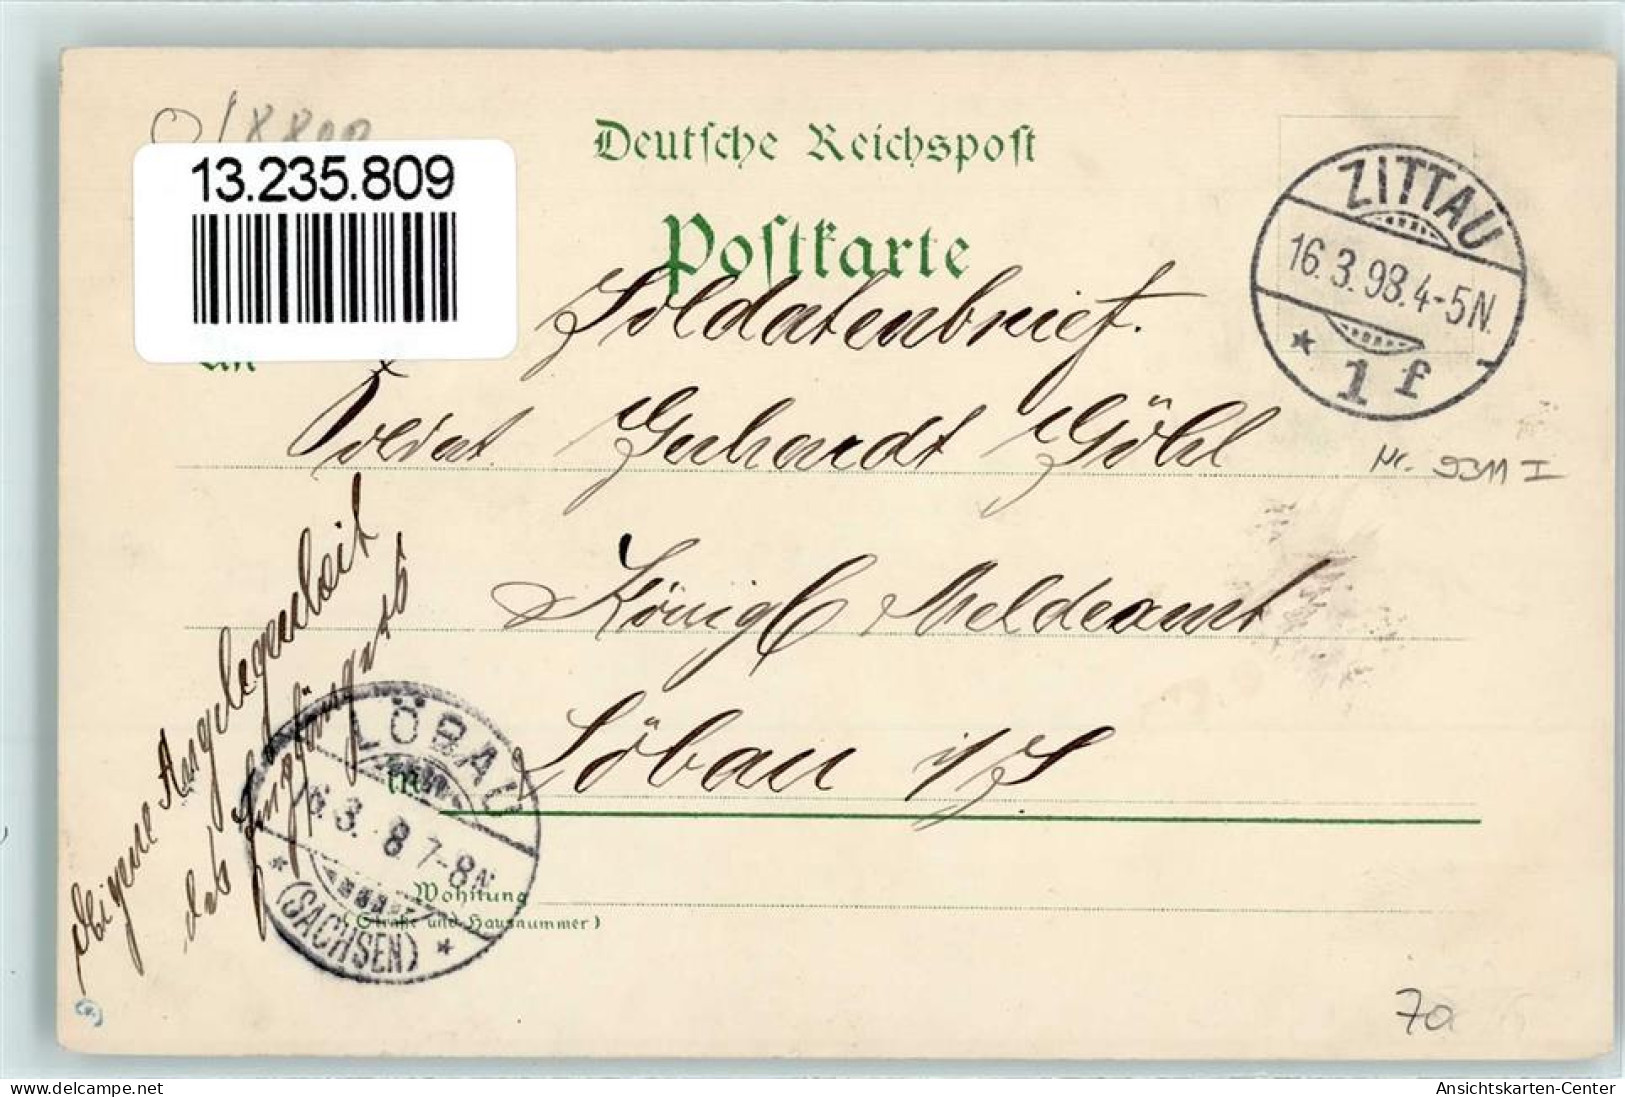 13.235.809
Deutsche Reichspost
Postkarte
ZITTAU
16.3.98.4-5N.
* 1 f
Soldatenbrief.
Soldat Gerhardt Göhl
Nr. 9311 I
Königl Meldeamt
Löbau i/S
Eigene Angelegenheit
des Empfängers
LÖBAU
16.3. 8.7-8N.
* (SACHSEN) *
in
Wohnung
(Straße und Hausnummer)
70
delcampe.net
Ansichtskarten-Center